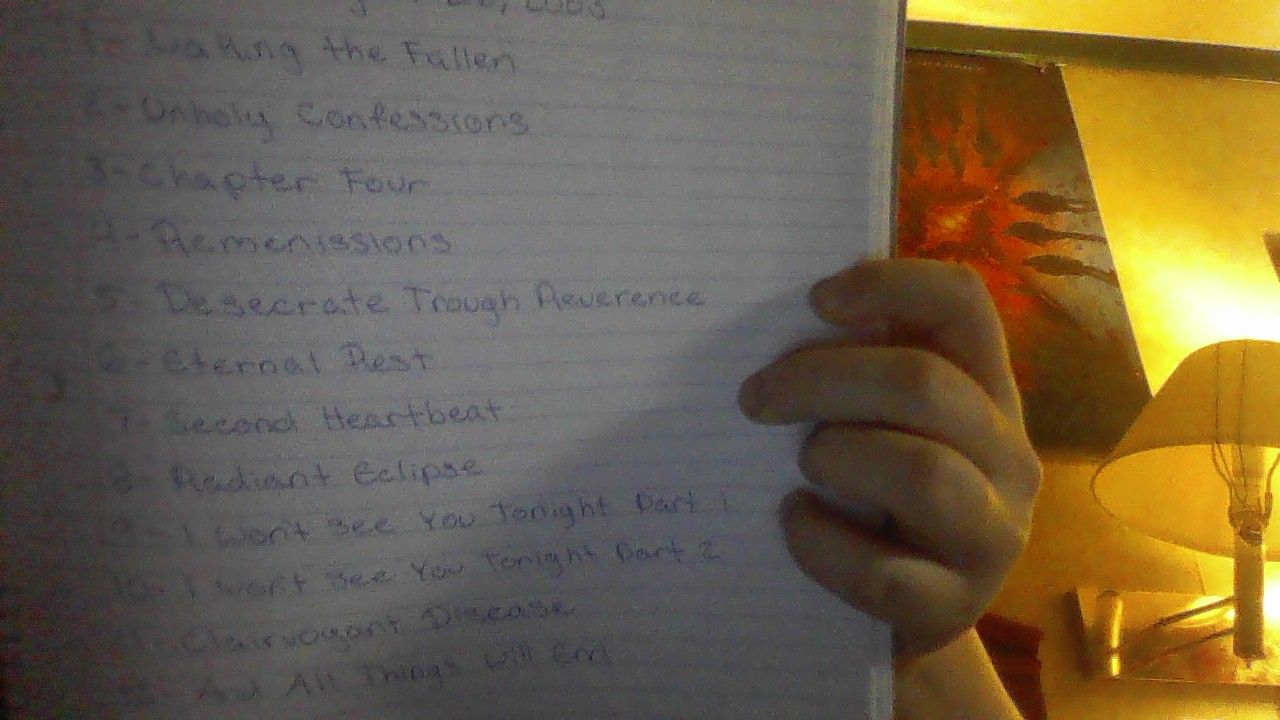 2003
1- Waking the Fallen
2- Unholy Confessions
3- Chapter Four
4- Remenissions
5- Desecrate Trough Reverence
6- Eternal Rest
7- Second Heartbeat
8- Radiant Eclipse
9- I Won't See You Tonight Part 1
10- I Won't See You Tonight Part 2
Clairvoyant Disease
And All Things Will End